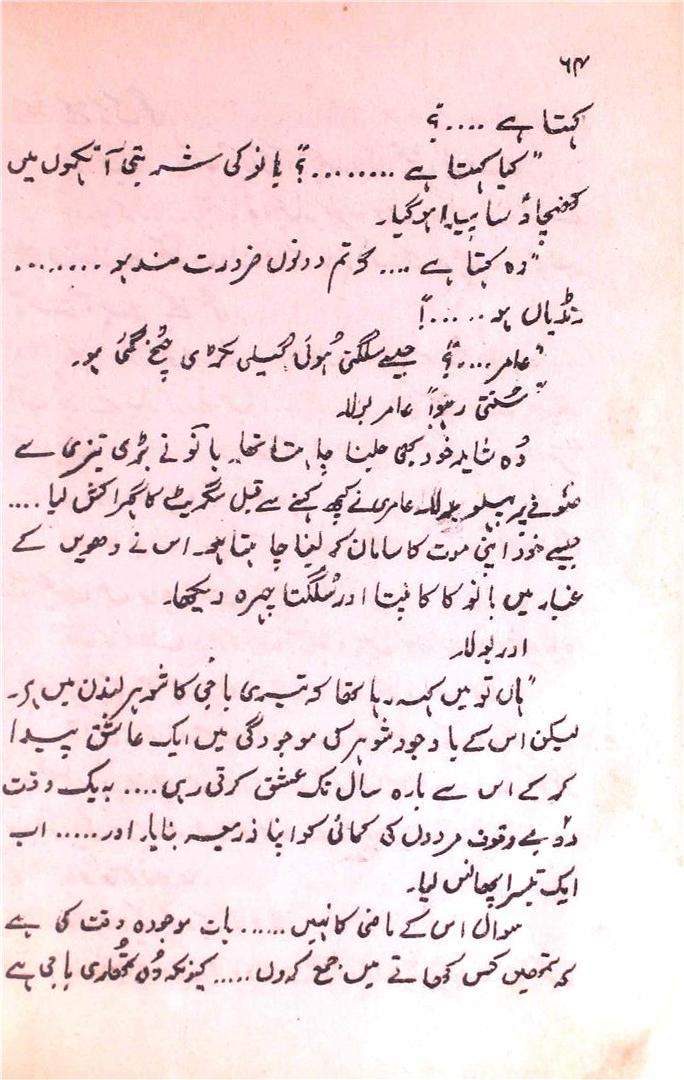 ۶۴
کہتا ہے ....؟
"کیا کہتا ہے ........؟" بانو کی شربتی آنکھوں میں
کھنچاؤ سا پیدا ہو گیا۔
"وہ کہتا ہے .... کہ تم دونوں ضرورت مند ہو ........
رنڈیاں ہو .....!"
"عامر....؟" جیسے سلگتی ہوئی گیلی لکڑی چٹخ گئی ہو۔
"سُنتی رہو!" عامر بولا۔
وُہ شاید خود بھی جلنا چاہتا تھا۔ بانو نے بڑی تیزی سے
صوفے پر پہلو بدلا۔ عامر نے کچھ کہنے سے قبل سگریٹ کا گہرا کش لیا ....
جیسے خود اپنی موت کا سامان کر لینا چاہتا ہو۔ اس نے دھویں کے
غبار میں بانو کا کانپتا اور سُلگتا چہرہ دیکھا۔
اور بولا۔
"ہاں تو میں کہہ رہا تھا کہ تیری باجی کا شوہر لندن میں ہے۔
لیکن اس کے باوجود شوہر کی موجودگی میں ایک عاشق پیدا
کر کے اس سے بارہ سال تک عشق کرتی رہی .... بہ یک وقت
دو بے وقوف مردوں کی کمائی کو اپنا ذریعہ بنایا۔ اور ..... اب
ایک تیسرا پھانس لیا۔
سوال اس کے ماضی کا نہیں ...... بات موجودہ وقت کی ہے
کہ تمھیں کس کھاتے میں جمع کروں ..... کیونکہ وُہ تمھاری باجی ہے